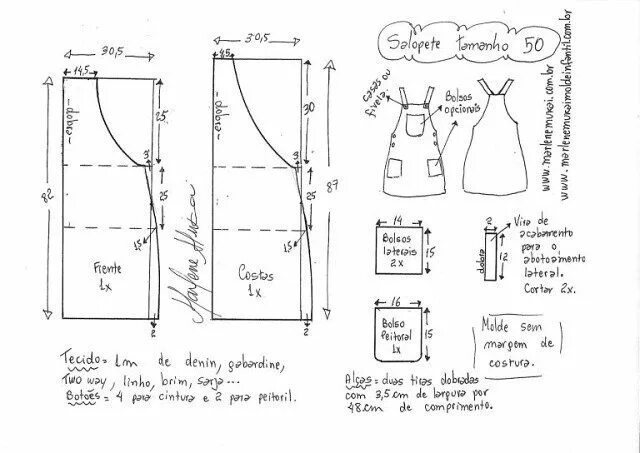 Salopete tamanho 50
www.marlenemukai.com.br
www.marlenemukaimoldeinfantil.com.br
30,5
14,5
dobra
25
3
82
25
1,5
Frente
1x
2
30,5
8,5
dobra
30
3
87
25
1,5
Costas
1x
2
Marlene Mukai
casas ou
fivela
Bolsos
opcionais
14
Bolsos
laterais
2x
15
2
dobra
12
Vira de
acabamento
para o
abotoamento
lateral.
Cortar 2x.
16
Bolso
Peitoral
1x
15
Molde sem
margem de
costura.
Tecido = 1m de denin, gabardine,
Two way, linho, brim, sarja...
Botões = 4 para cintura e 2 para peitoril.
Alças = duas tiras dobradas
com 3,5cm de largura por
48cm de comprimento.